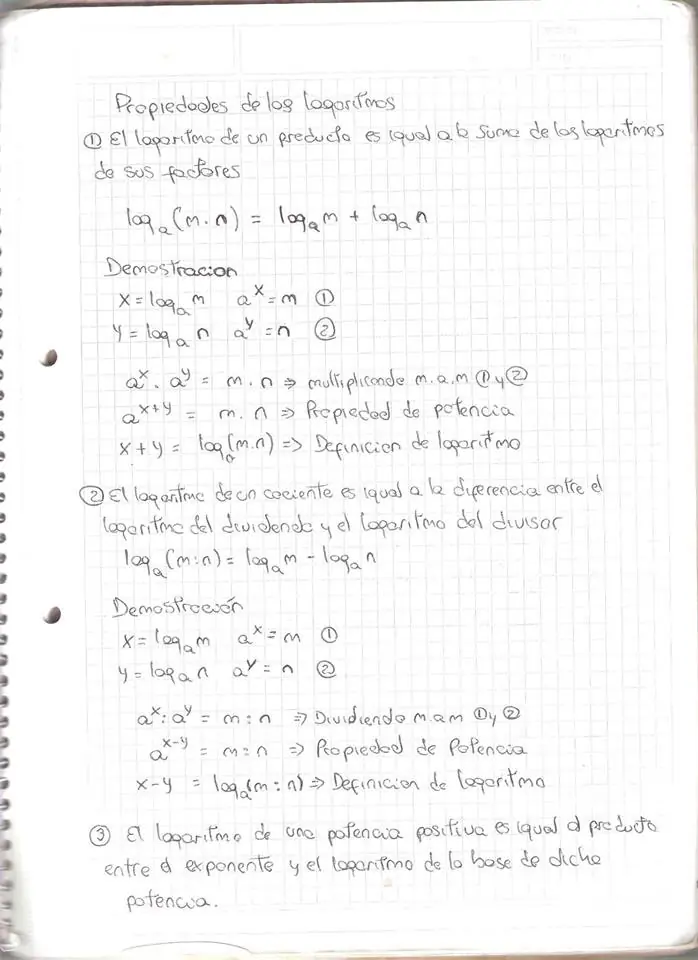 Propiedades de los logaritmos
① El logaritmo de un producto es igual a la suma de los logaritmos
de sus factores
logₐ(m . n) = logₐ m + logₐ n
Demostracion
x = logₐ m aˣ = m ①
y = logₐ n aʸ = n ②
aˣ . aʸ = m . n ⇒ multiplicando m.a.m ① y ②
aˣ⁺ʸ = m . n ⇒ Propiedad de potencia
x + y = logₐ(m.n) => Definicion de logaritmo
② El logaritmo de un cociente es igual a la diferencia entre el
logaritmo del dividendo y el logaritmo del divisor
logₐ(m:n) = logₐ m - logₐ n
Demostración
x = logₐ m aˣ = m ①
y = logₐ n aʸ = n ②
aˣ : aʸ = m : n ⇒ Dividiendo m.a.m ① y ②
aˣ⁻ʸ = m : n => Propiedad de Potencia
x - y = logₐ(m : n) ⇒ Definicion de logaritmo
③ El logaritmo de una potencia positiva es igual al producto
entre el exponente y el logaritmo de la base de dicha
potencia.